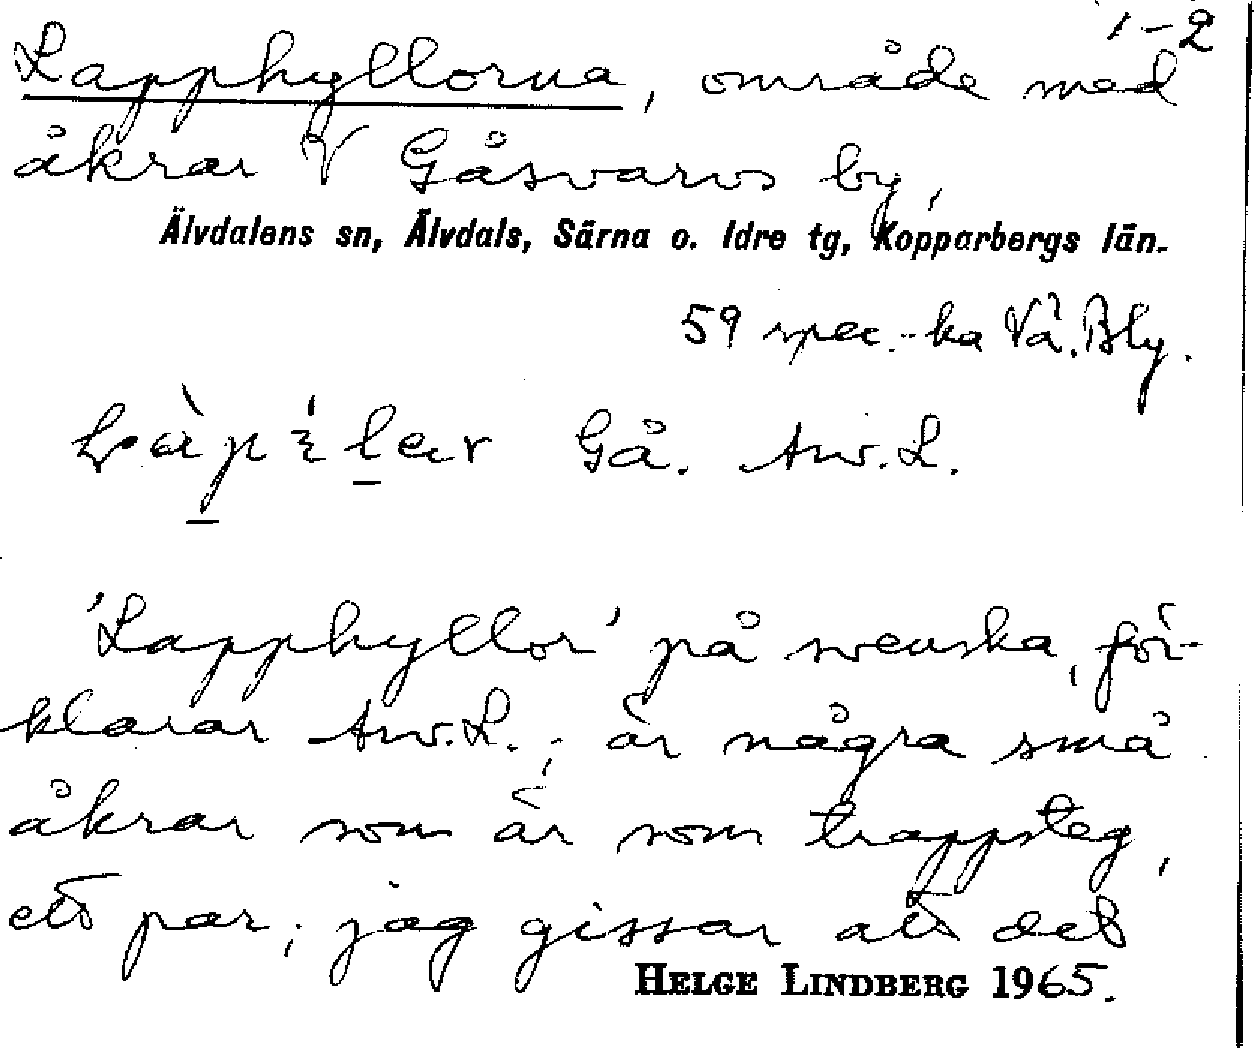 1-2
Lapphyllorna, område med
åkrar V Gåsvarvs by,
Älvdalens sn, Älvdals, Särna o. Idre tg, Kopparbergs län.
59 spec.-ka Vå. Bly.
Gå. Anv. L.
'Lapphyllor' på svenska, för-
klarar Anv. L.; är några små
åkrar som är som trappsteg,
ett par; jag gissar att det
HELGE LINDBERG 1965.